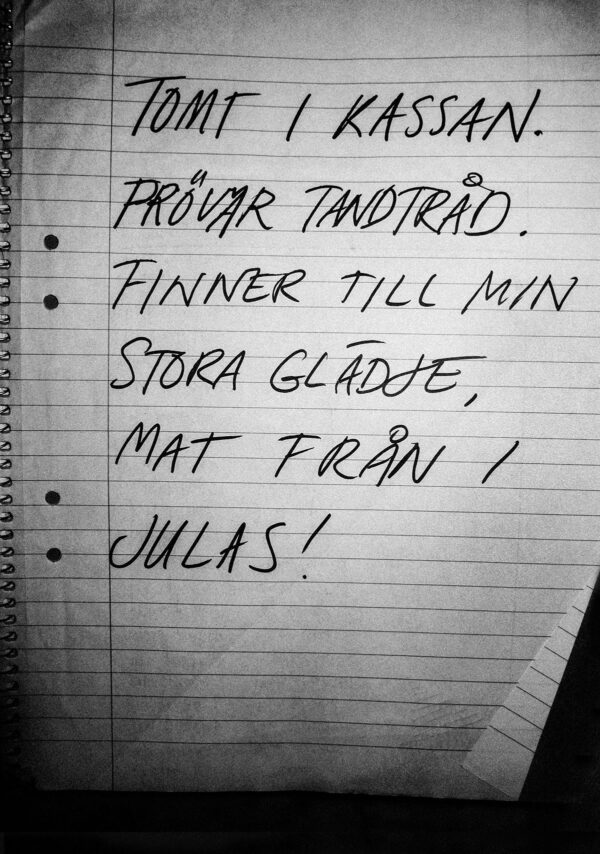 TOMT I KASSAN.
PRÖVAR TANDTRÅD.
FINNER TILL MIN
STORA GLÄDJE,
MAT FRÅN I
JULAS!